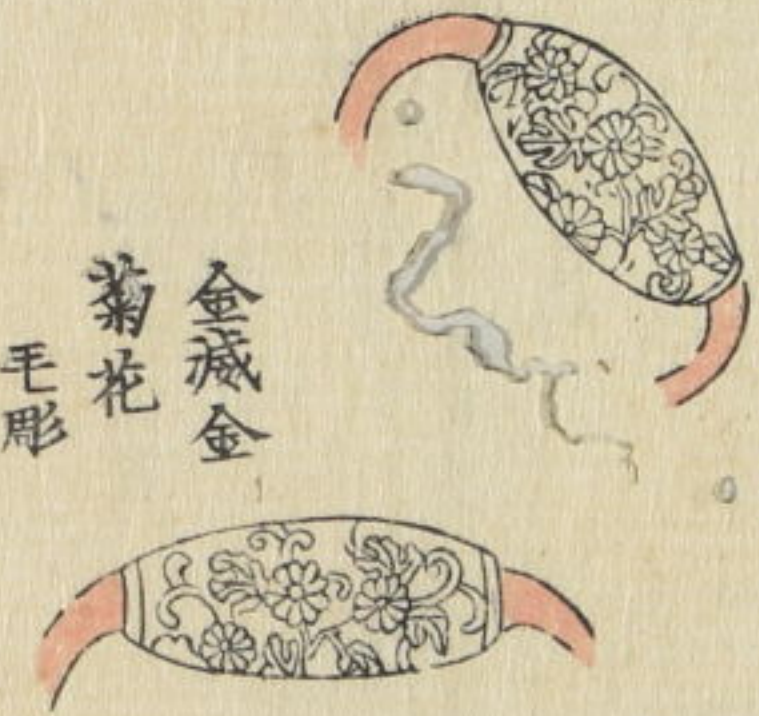 金滅金
菊花
毛彫